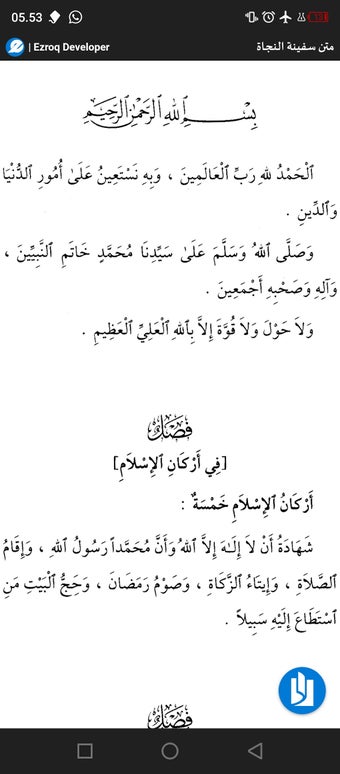 05.53
| Ezroq Developer متن سفينة النجاة
بِسْمِ اللهِ الرَّحْمٰنِ الرَّحِيْمِ
الْحَمْدُ لِلهِ رَبِّ الْعَالَمِينَ ، وَبِهِ نَسْتَعِينُ عَلَىٰ أُمُورِ الدُّنْيَا
وَالدِّينِ .
وَصَلَّى اللهُ وَسَلَّمَ عَلَىٰ سَيِّدِنَا مُحَمَّدٍ خَاتَمِ النَّبِيِّينَ ،
وَآلِهِ وَصَحْبِهِ أَجْمَعِينَ .
وَلاَ حَوْلَ وَلاَ قُوَّةَ إِلاَّ بِاللهِ الْعَلِيِّ الْعَظِيمِ .
فَصْلٌ
[فِي أَرْكَانِ الإِسْلاَمِ]
أَرْكَانُ الإِسْلاَمِ خَمْسَةٌ :
شَهَادَةُ أَنْ لاَ إِلَـٰهَ إِلاَّ اللهُ وَأَنَّ مُحَمَّداً رَسُولُ اللهِ ، وَإِقَامُ
الصَّلاَةِ ، وَإِيتَاءُ الزَّكَاةِ ، وَصَوْمُ رَمَضَانَ ، وَحِجُّ الْبَيْتِ مَنِ
اسْتَطَاعَ إِلَيْهِ سَبِيلاً .
فَصْلٌ